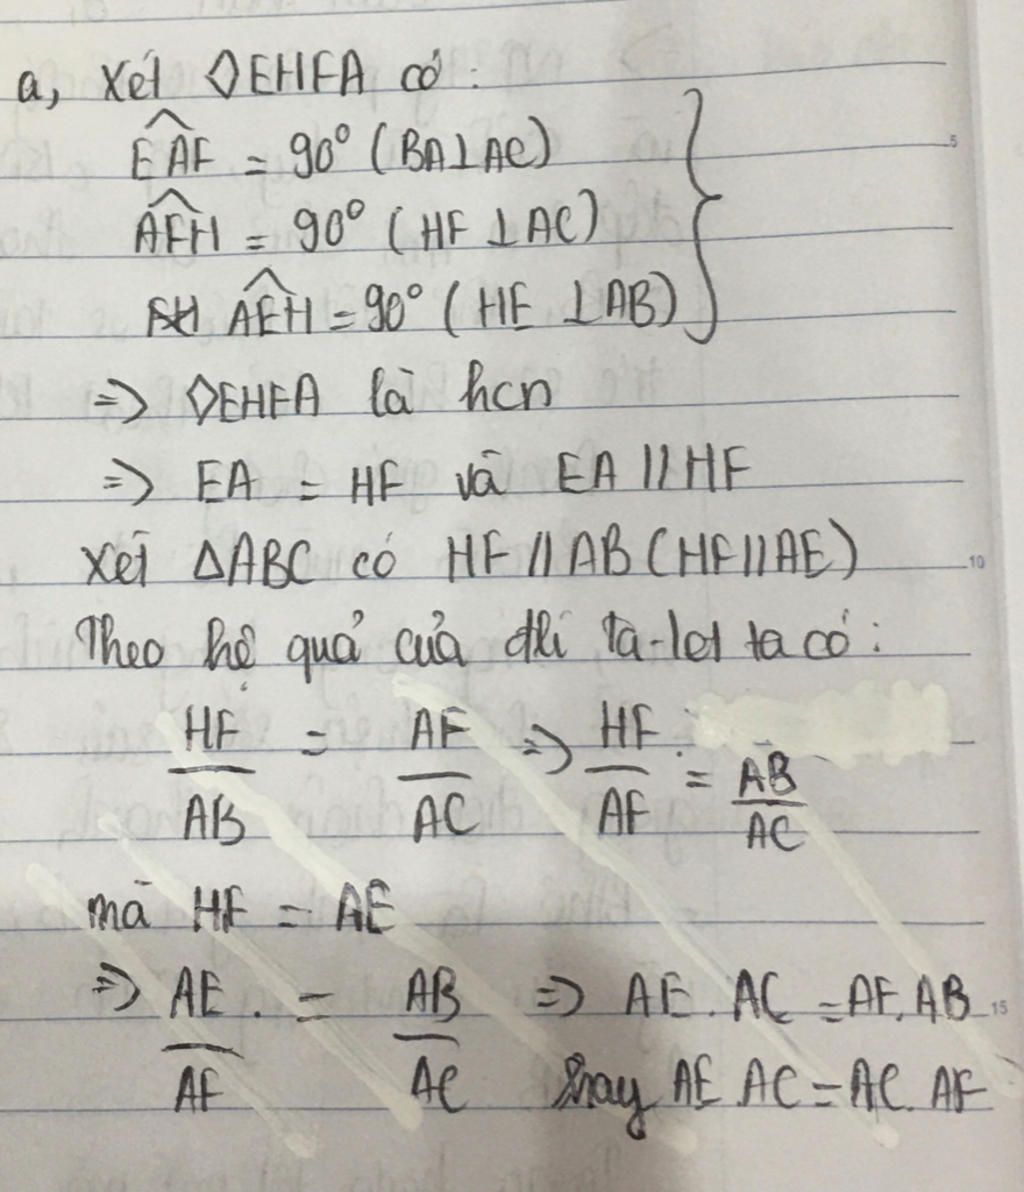 a, Xét ◊EHFA có:
EAF = 90° (BA⊥AC)
AFH = 90° (HF⊥AC)
AEH = 90° (HE ⊥AB)
5
=> ◊EHFA là hcn
=> EA = HF và EA // HF
Xét ΔABC có HF // AB (HF//AE)
10
Theo hệ quả của đli Ta-let ta có:
HF/AB = AF/AC => HF/AF = AB/AC
mà HF = AE
=> AE/AF = AB/AC => AE. AC = AF. AB
15
hay AE. AC = AC. AF